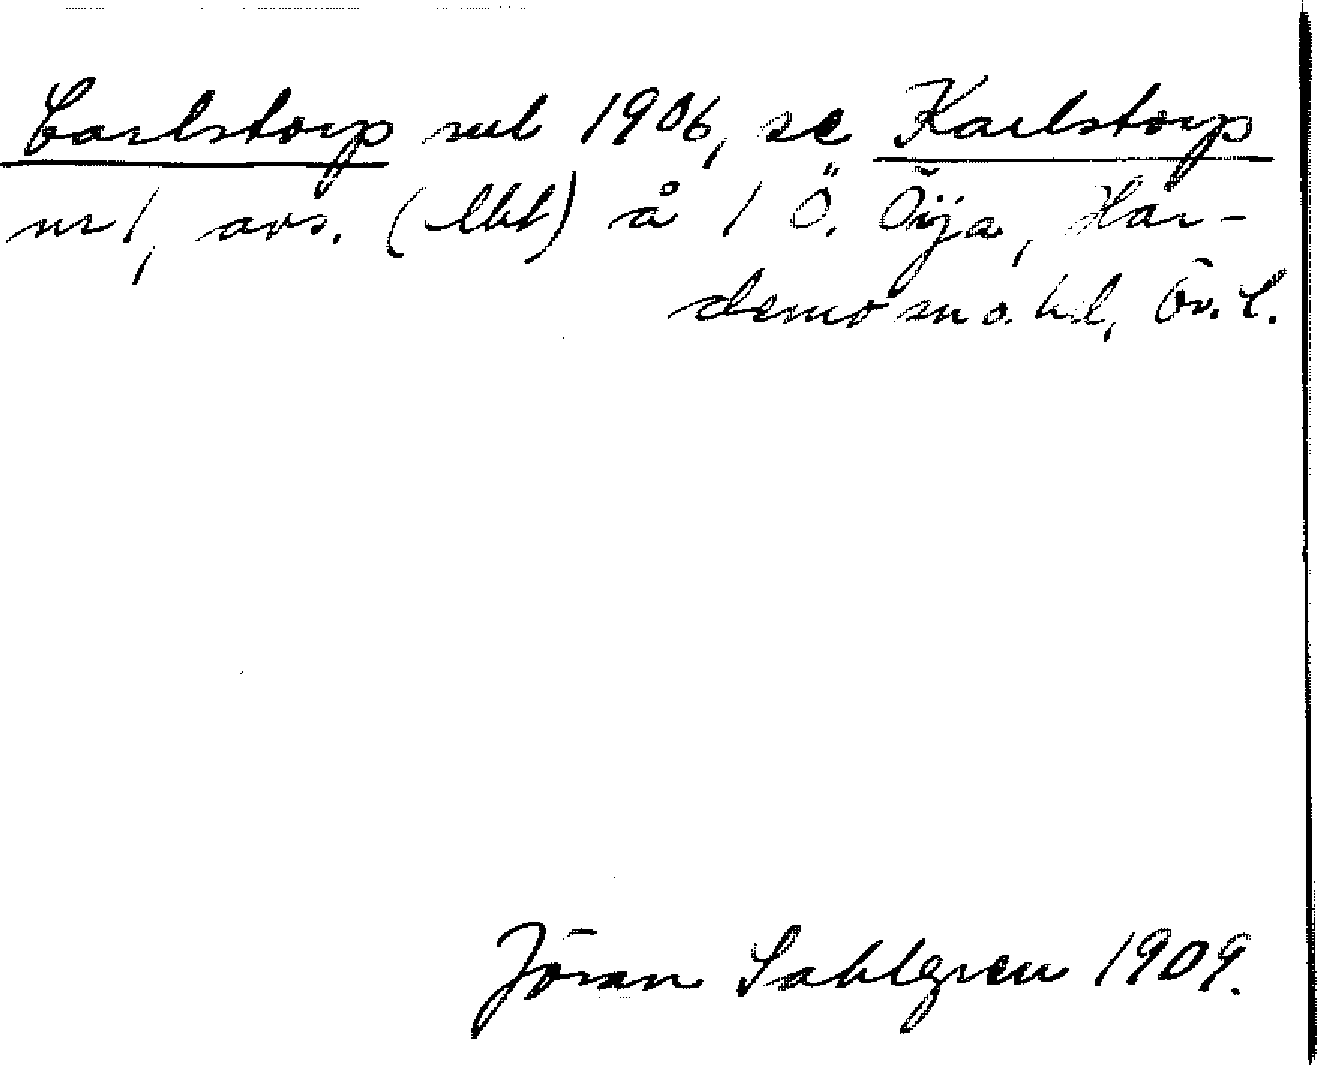 Carlstorp rub 1906, se Karlstorp
nr 1, avs. (lht) å 1 Ö. Öija, Har-
demo sn o. hd, Ör. L.
Jöran Sahlgren 1909.